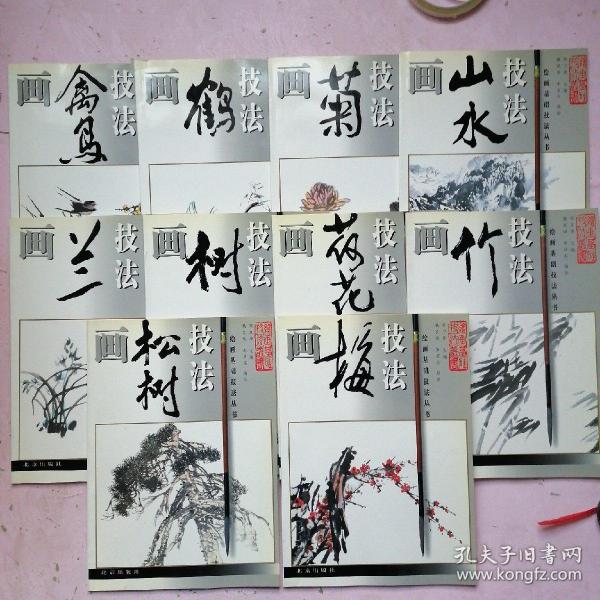 画禽鸟技法
画鹤技法
画菊技法
画山水技法
绘画基础技法丛书
画兰技法
画树技法
画荷花技法
画竹技法
绘画基础技法丛书
北京出版社
画松树技法
绘画基础技法丛书
北京出版社
画梅技法
绘画基础技法丛书
北京出版社
孔夫子旧书网
www.kongfz.com